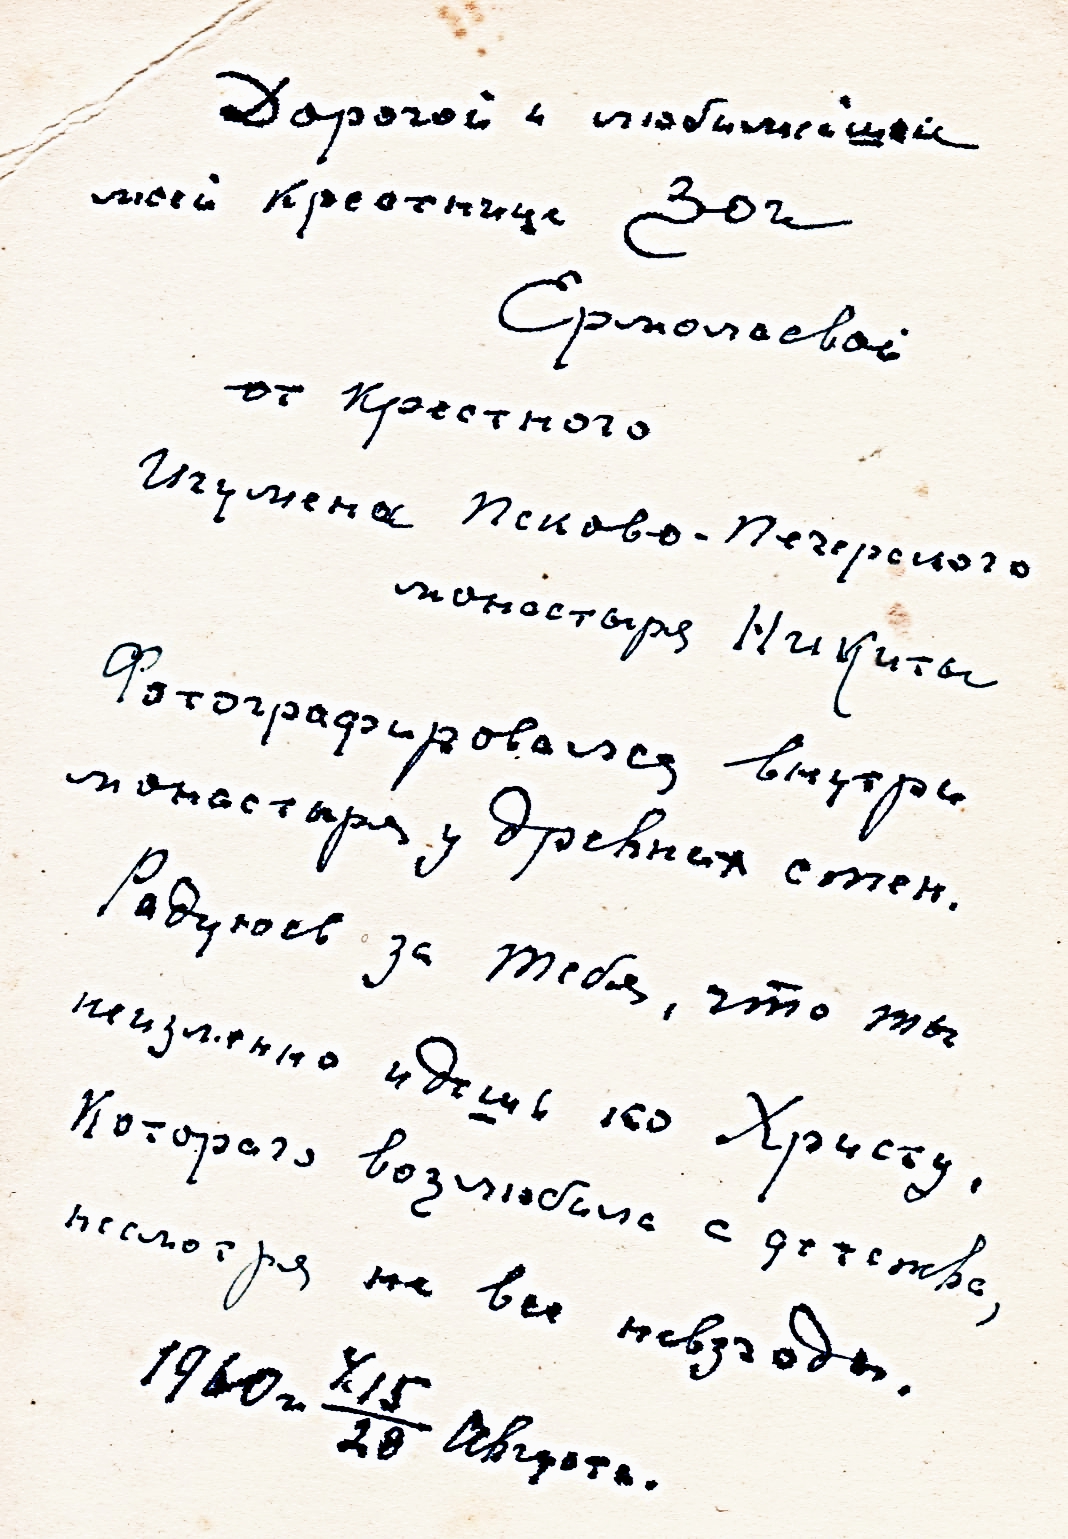 Дорогой и любимейшей
моей крестнице Зои
Ермолаевой
от Крестного
Игумена Псково-Печерского
монастыря Никиты
Фотографировался внутри
монастыря у древних стен.
Радуюсь за тебя, что ты
неизменно идешь ко Христу,
Которого возлюбила с детства,
несмотря на все невзгоды.
1960 г 15
28 Августа.